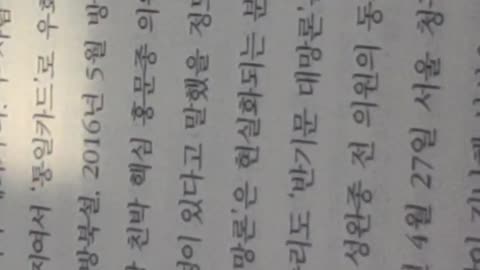 '통일카드'로
방북설. 2016년 5월 방
친박 핵심 홍문종 의
있다고 말했을 정
망론'은 현실화되는 분
리도 '반기문 대망론'
성완종 전 의원의 동
4월 27일 서울 청